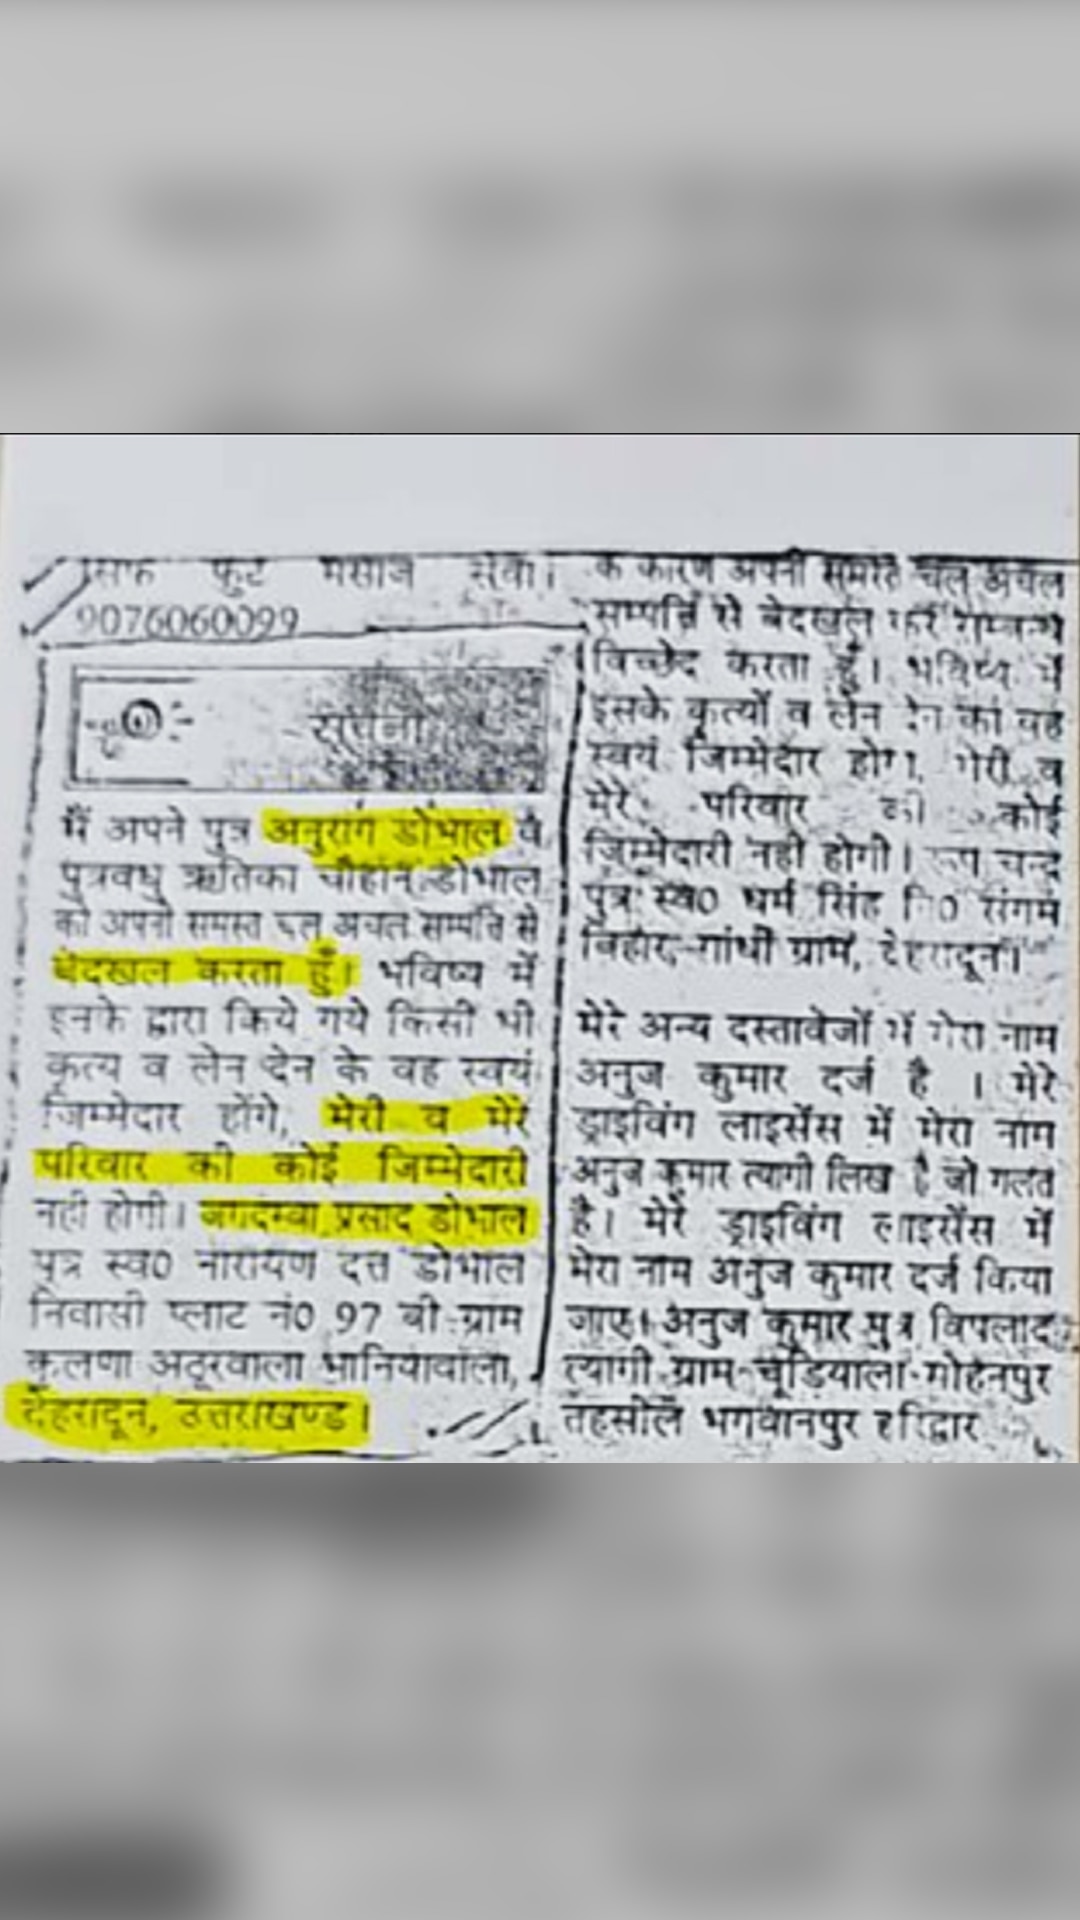 फुट मसाज सेवा।
9076060099
सूचना
मैं अपने पुत्र अनुराग डोभाल व
पुत्रवधु ऋतिका चौहान डोभाल
को अपनी समस्त चल अचल सम्पत्ति से
बेदखल करता हूँ। भविष्य में
इनके द्वारा किये गये किसी भी
कृत्य व लेन देन के वह स्वयं
जिम्मेदार होंगे, मेरी व मेरे
परिवार की कोई जिम्मेदारी
नही होगी। जगदम्बा प्रसाद डोभाल
पुत्र स्व0 नारायण दत्त डोभाल
निवासी प्लाट नं0 97 बी ग्राम
कलणा अठूरवाला भानियावाला,
देहरादून, उत्तराखण्ड।
के कारण अपनी समस्त चल अचल
सम्पत्ति से बेदखल कर सम्बन्ध
विच्छेद करता हूँ। भविष्य में
इसके कृत्यों व लेन देन का वह
स्वयं जिम्मेदार होगा, मेरी व
मेरे परिवार की कोई
जिम्मेदारी नही होगी। रूप चन्द
पुत्र स्व0 धर्म सिंह नि0 संगम
विहार गांधी ग्राम, देहरादून।
मेरे अन्य दस्तावेजों में मेरा नाम
अनुज कुमार दर्ज है । मेरे
ड्राइविंग लाइसेंस में मेरा नाम
अनुज कुमार त्यागी लिख है जो गलत
है। मेरे ड्राइविंग लाइसेंस में
मेरा नाम अनुज कुमार दर्ज किया
जाए। अनुज कुमार पुत्र विपलाद
त्यागी ग्राम चूडियाला मोहनपुर
तहसील भगवानपुर हरिद्वार